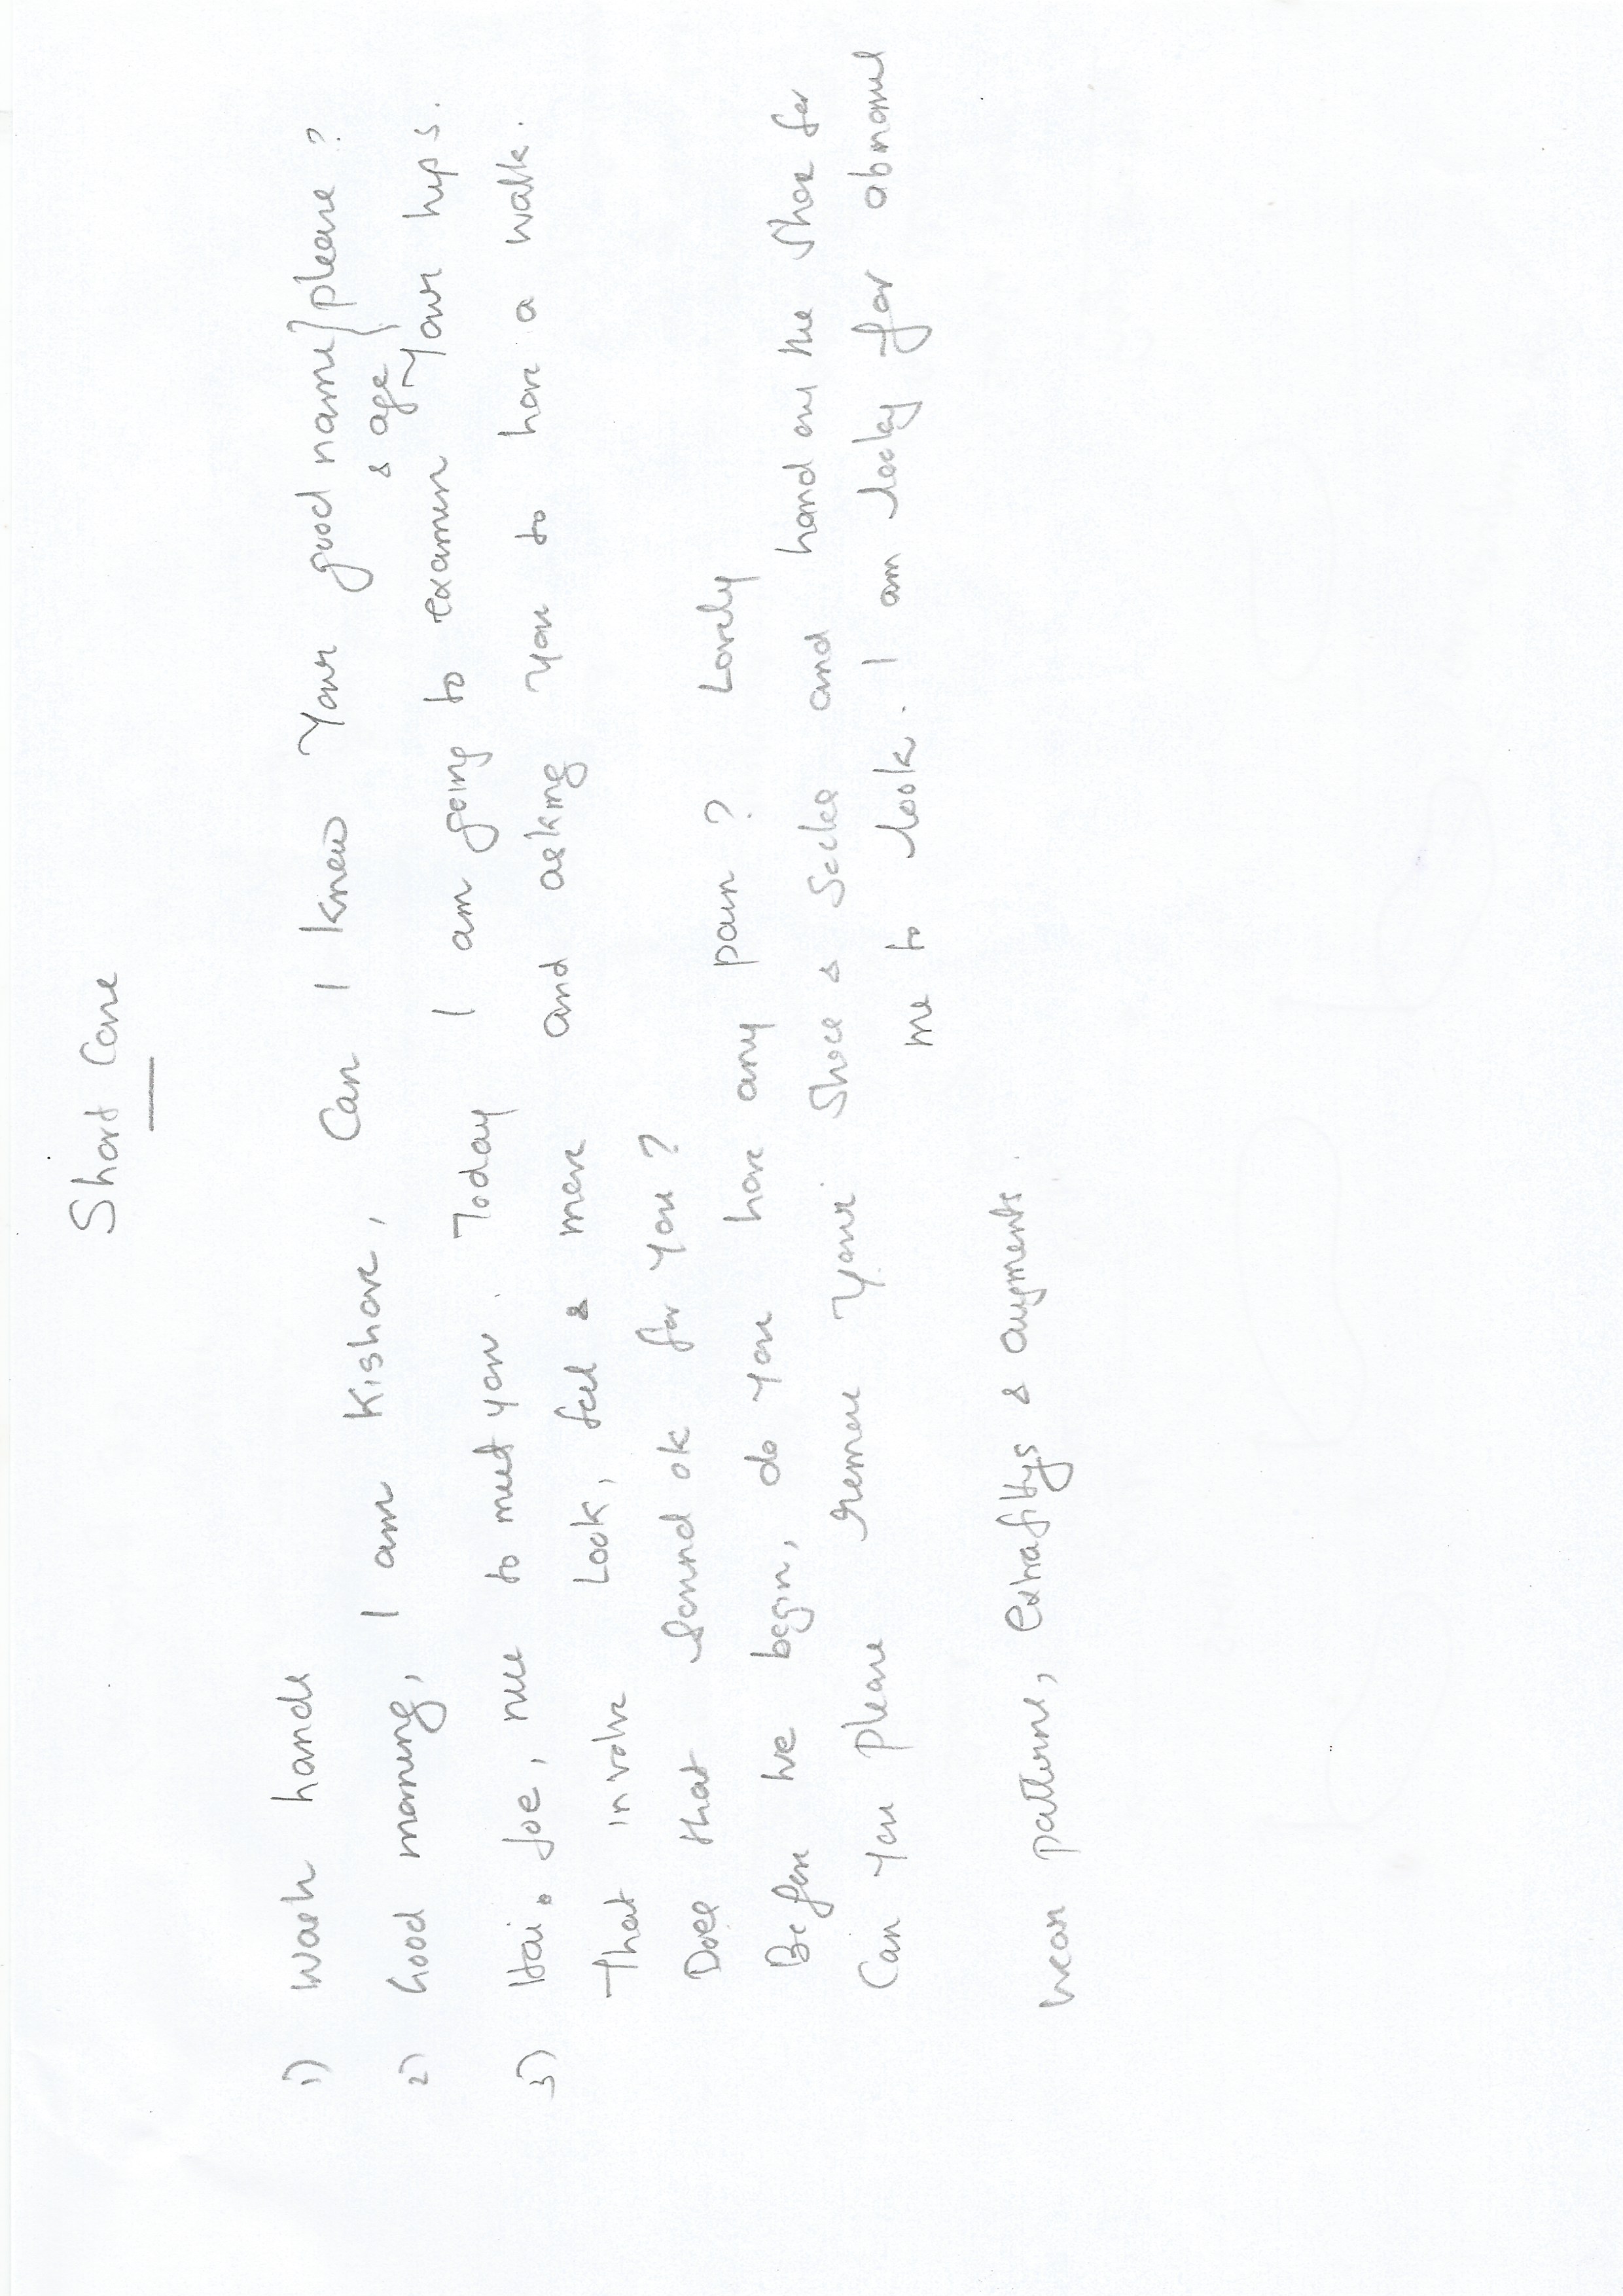 Short Case
1) Wash hands
2) Good morning, I am Kishore, Can I know Your good name } please ?
& age
3) Hai. Joe, nice to meet you. Today I am going to examin Your hips.
That involve Look, feel & move and asking you to have a walk.
Does that sound ok for you ?
Before we begin, do you have any pain ? Lovely
Can you please remove your shoes & socks and hand over the shoe for
me to look. I am looking for abnormal
wear patterns, extra fittings & augments.